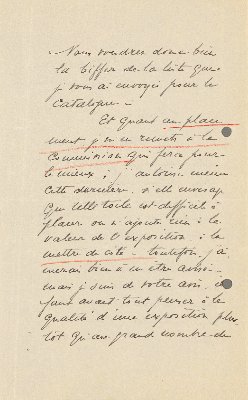 - Vous voudrez donc bien
la biffer de la liste que
je vous ai envoyée pour le
Catalogue -
Et quant au place
ment j'en remets à la
Commission qui fera pour
le mieux ; j'autorise même
cette dernière, si elle envisage
que cette toile est difficile à
placer ou n'ajoute rien à la
valeur de l'exposition, à la
mettre de côté - toutefois, j'ai
bien à en être avisé -
mais je suis de votre avis, il
faut avant tout penser à la
qualité d'une exposition plu
tôt qu'au grand nombre de